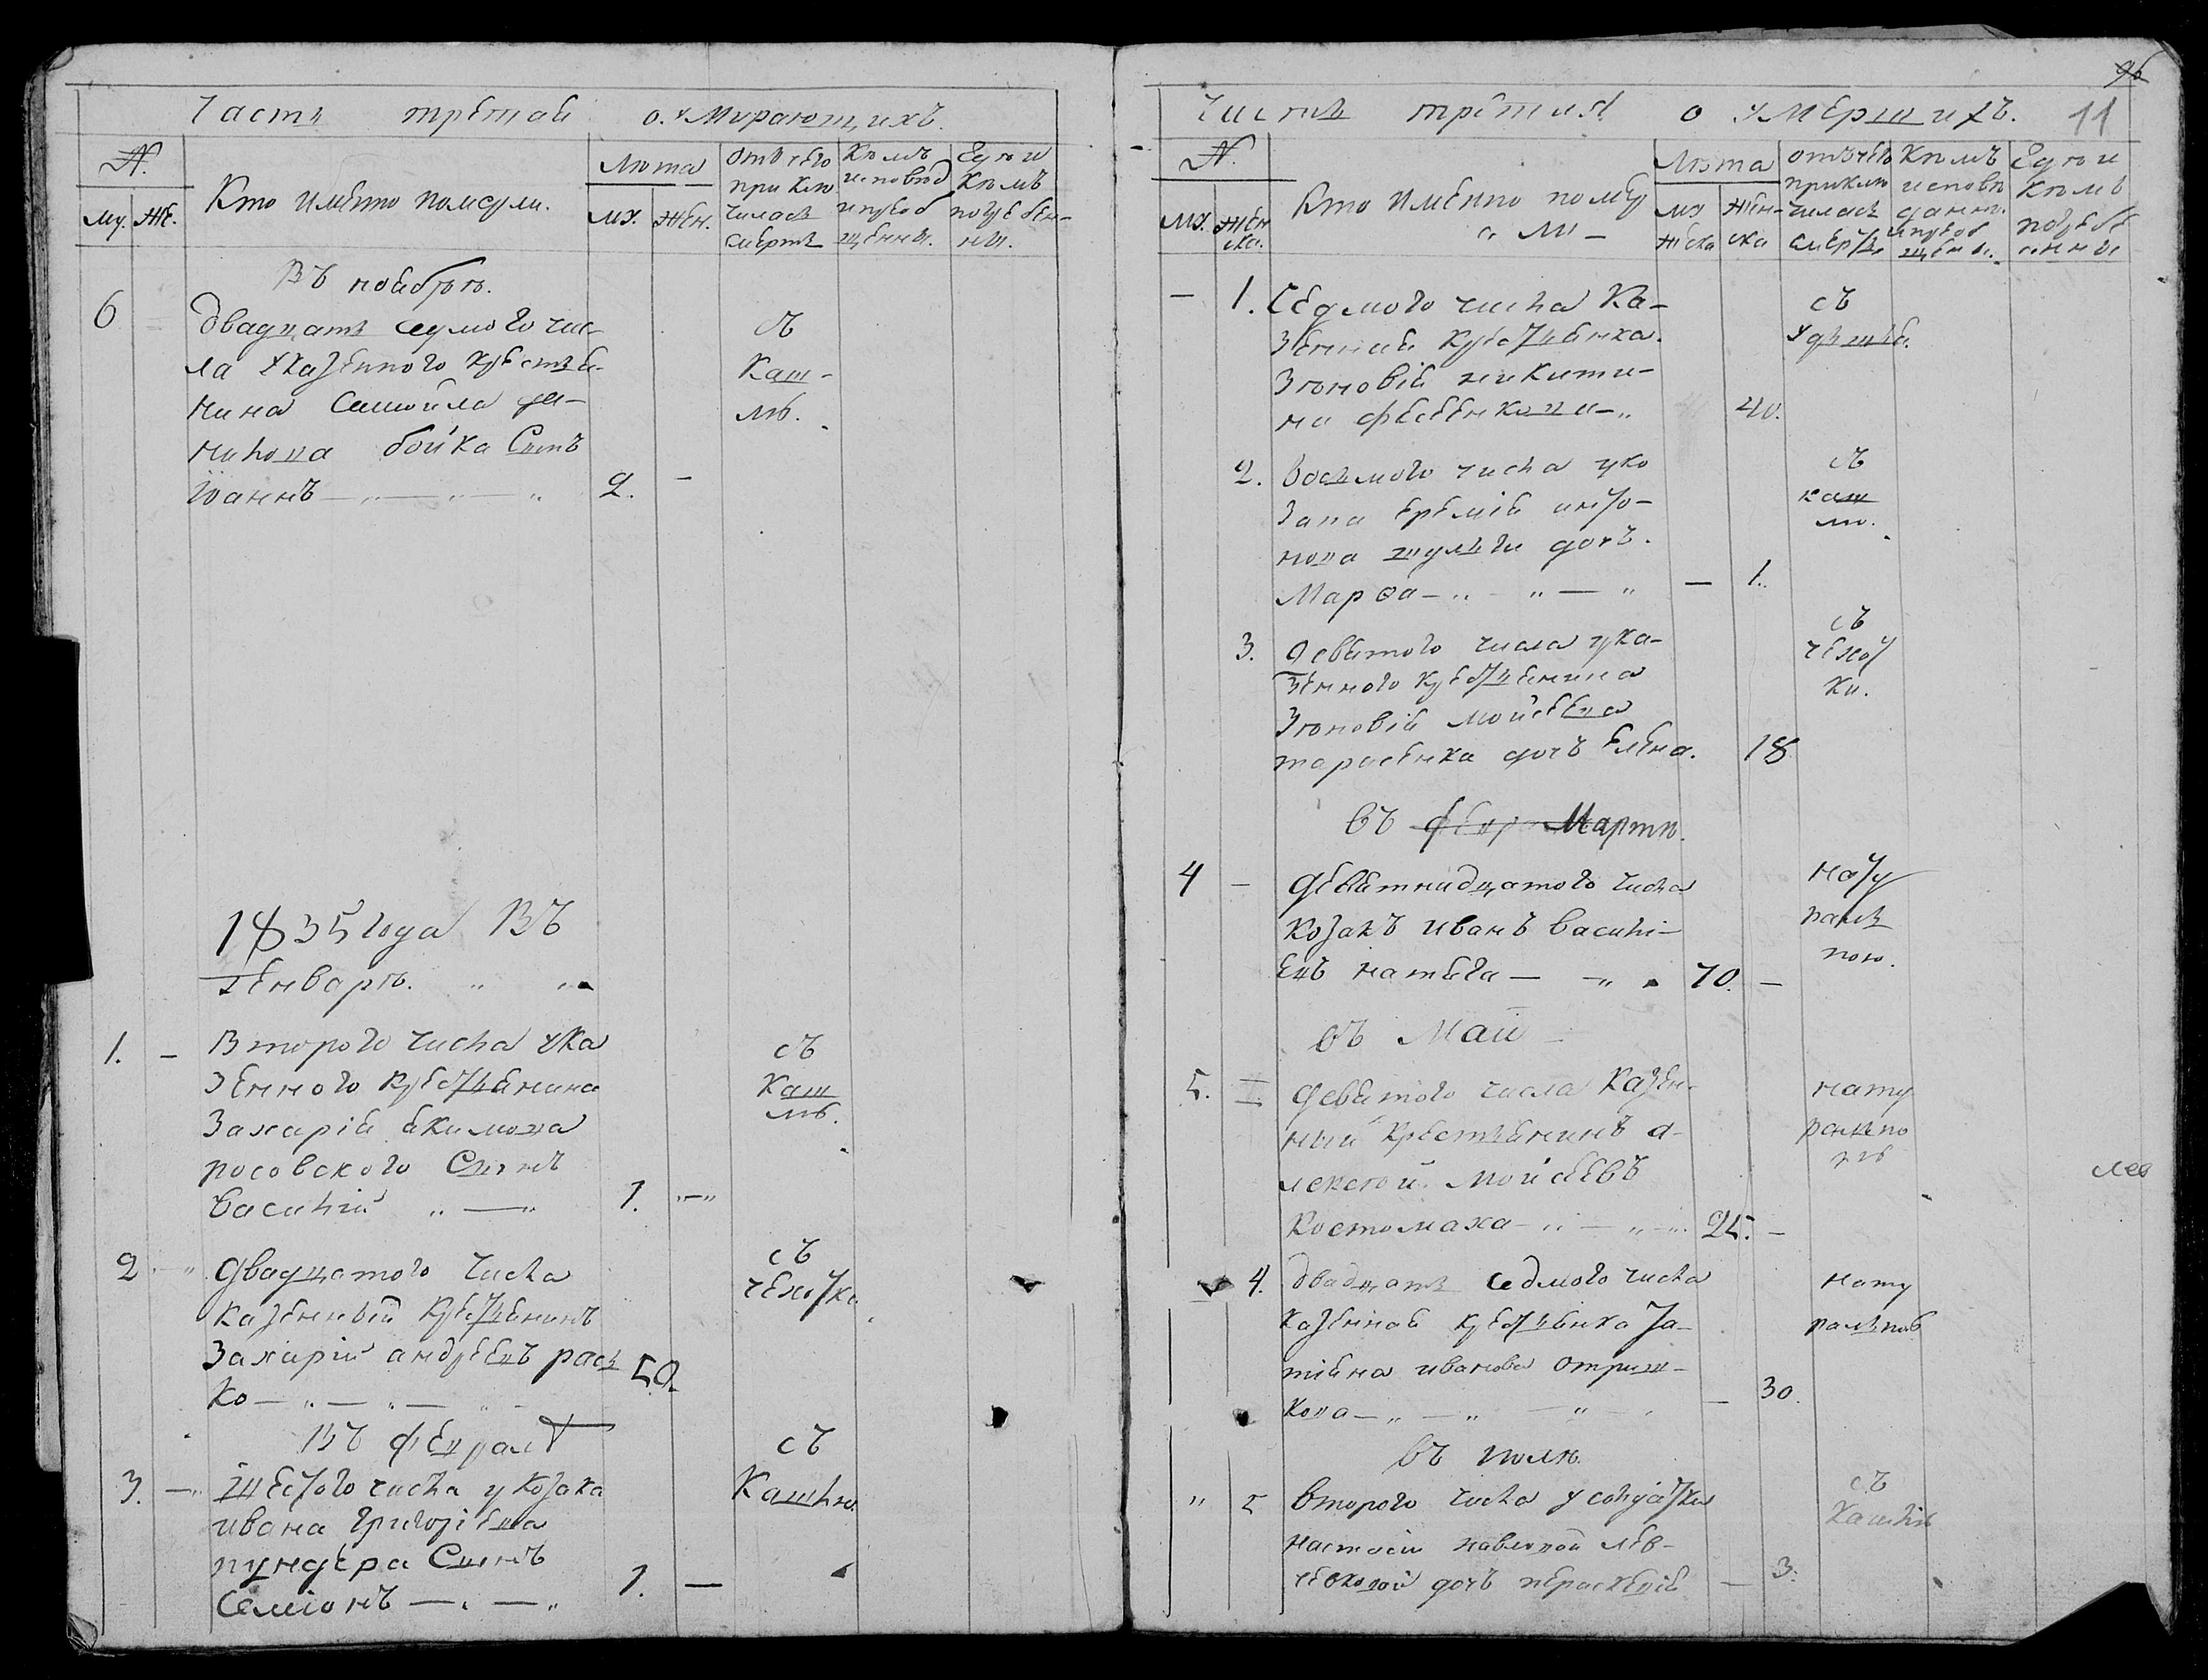 Часть третай о умирающихъ.
№.
Кто имѣнно померли.
Лѣта
Отъ чего приключилась смерть
Кѣмъ исповѣд и приобщенны.
Где и кѣмъ погребенны.
му. же.
мх. жен.
Въ ноябрѣ.
6
двадцать седмого чис-
ла у казенного крестья-
нина Самойла да-
нилова бойка Сынъ
Іоаннъ 2. —
съ
каш-
лю.
1835 года Въ
Генварѣ.
1. — Второго числа ука
зенного крестьянина
Захарія акимова
росовского Сынъ
Василій 1.
съ
Каш
лю.
2 двадцатого числа
казенный крестьянинъ
Захарій андреевъ рась
ко 50.
съ
чехотки.
Въ феврале
3. — шестого числа у козака
ивана григоріева
пундера Сынъ
Семіонъ 1. —
съ
Кашлю
96
Часть третия о умершихъ. 11
№.
Кто имѣнно помер
ли
Лѣта
отъ чего приклю чилась смерть
Кѣмъ исповѣ данны. и приоб щенны.
Где и кѣмъ погребе нны
мх. жен ска.
мх жска жен- ска
— 1. Седмого числа Ка-
зенная крестьянка
Зѣновія никити-
на 40.
съ
2. восьмого числа уко
зака еремія анто-
нова шульги дочъ.
Марѳа — 1.
съ
каш
лю.
3. девятого числа ука-
зенного крестьянина
Зѣновія мойсеева
тарасенка дочъ елена. 18
съ
чехот
ки.
въ февра Мартѣ.
4 — девятнадцатого числа
козакъ иванъ васили-
евъ натяга 70. —
нату
раль
ною.
въ Маи
5. девятого числа казен-
ный крестьянинъ а-
лексей мойсеевъ
Костомаха 25. —
нату
рально
4. двадцать седмого числа
казенная крестьянка Та-
тіяна иванова отриш-
кова — 30.
нату
рально
въ июлѣ
второго числа у солдатки
настасіи павловой лев-
ченковой дочъ параскевія — 3.
съ
Кашлю